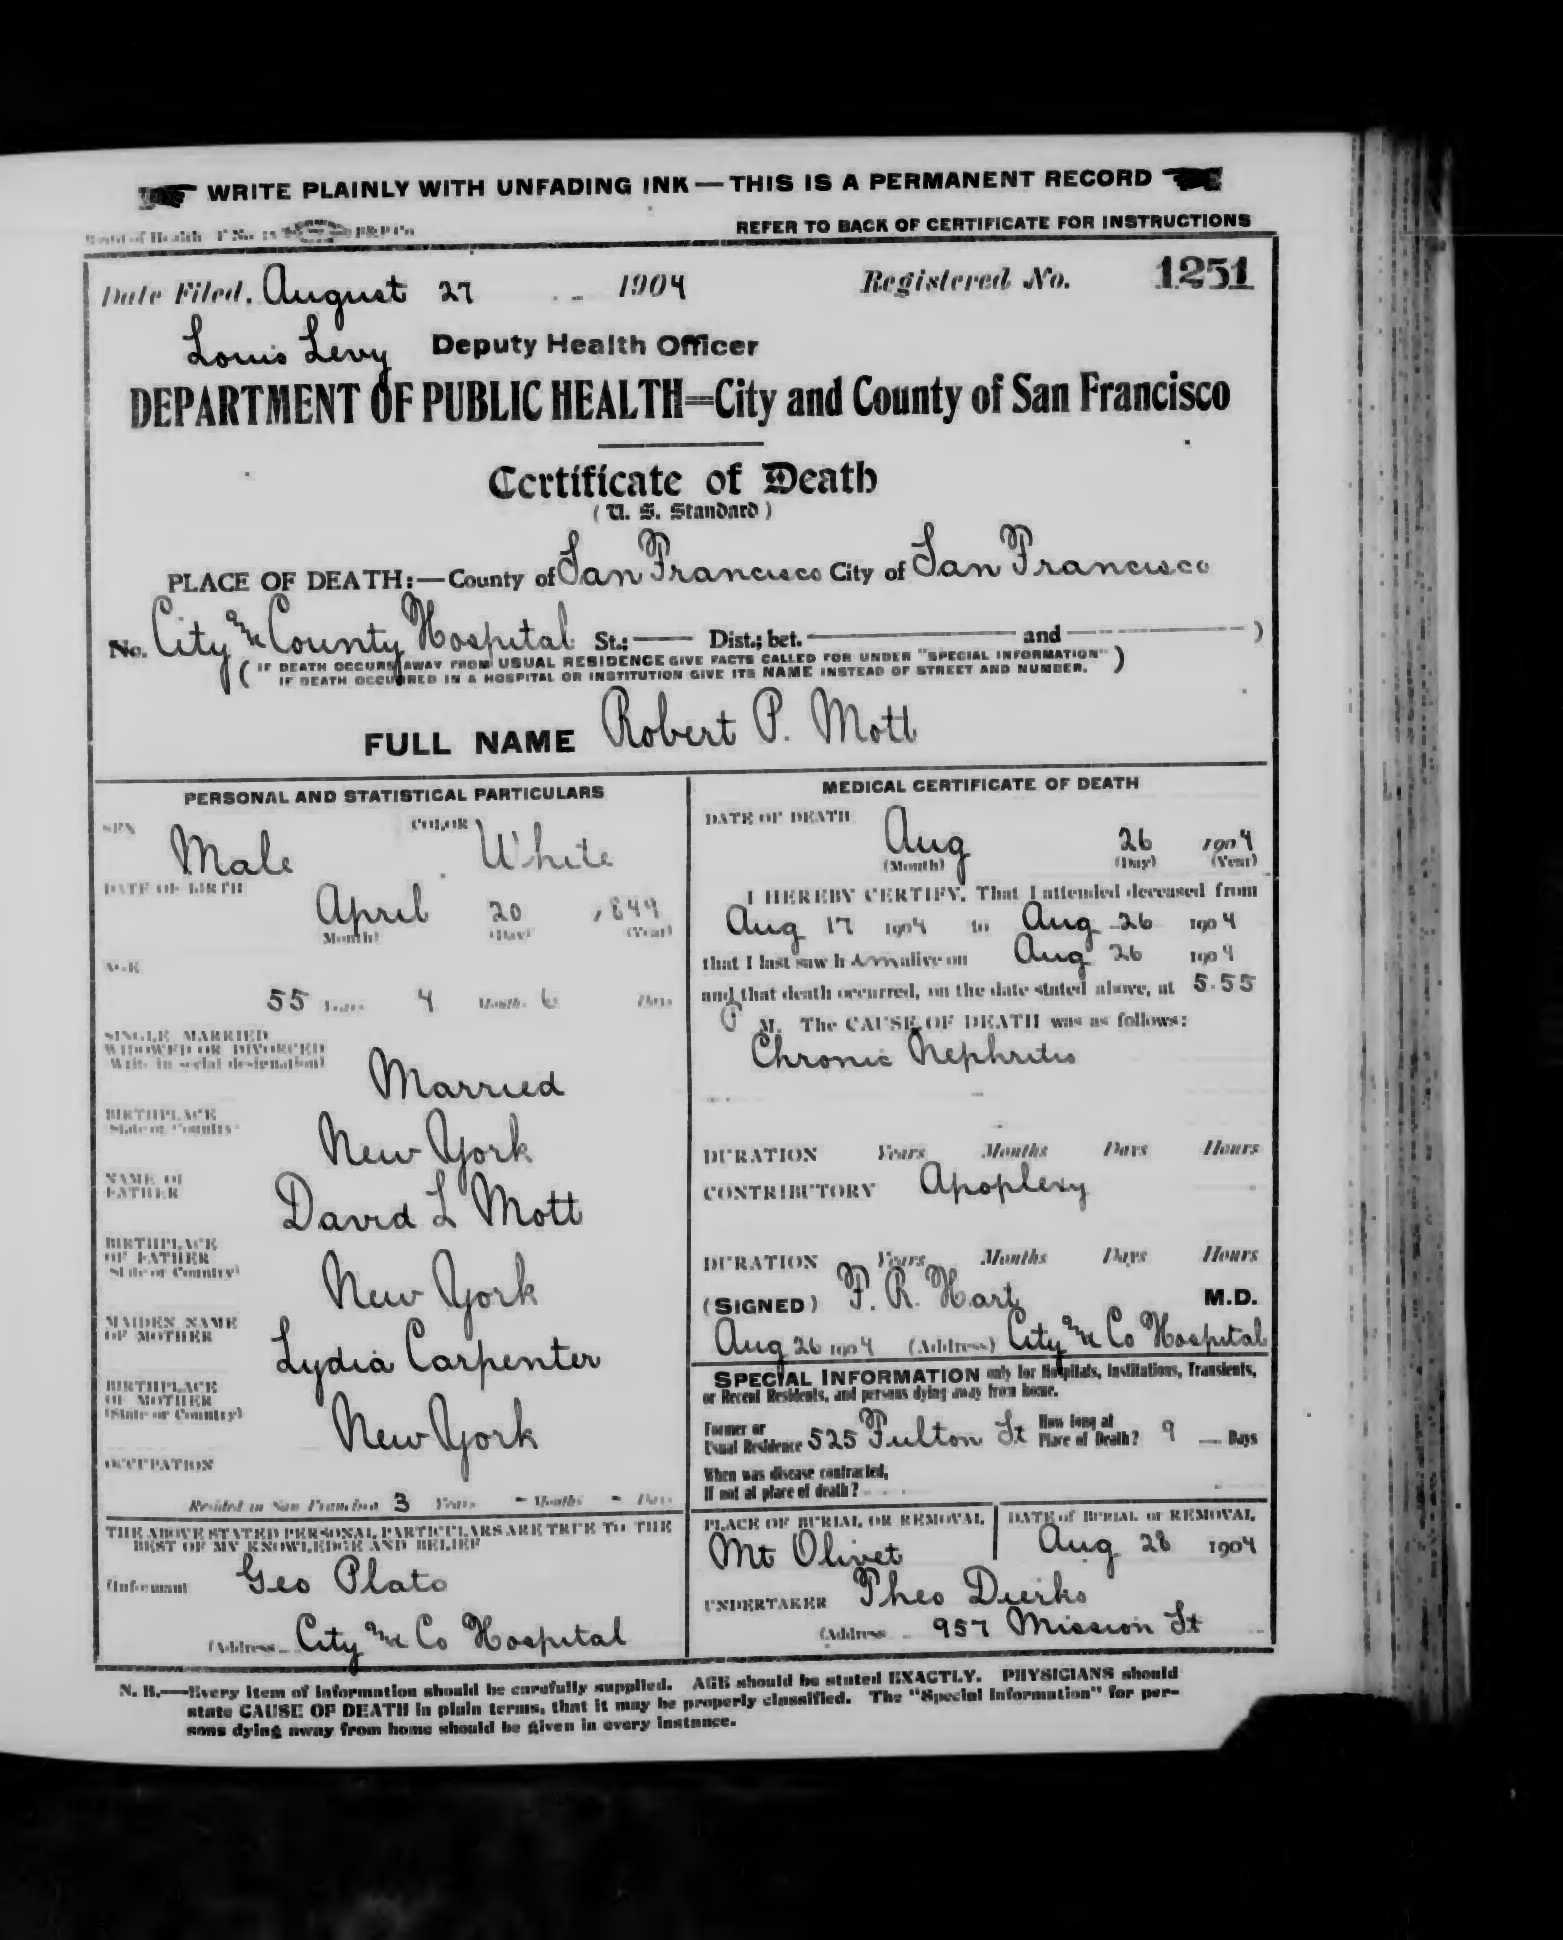 WRITE PLAINLY WITH UNFADING INK — THIS IS A PERMANENT RECORD
Board of Health F No. B&P Co
REFER TO BACK OF CERTIFICATE FOR INSTRUCTIONS
Date Filed, August 27 1904 Registered No. 1251
Louis Levy Deputy Health Officer
DEPARTMENT OF PUBLIC HEALTH=City and County of San Francisco
Certificate of Death
( U. S. Standard )
PLACE OF DEATH:—County of San Francisco City of San Francisco
No. City and County Hospital St.; —— Dist.; bet. —— and —— )
( IF DEATH OCCURS AWAY FROM USUAL RESIDENCE GIVE FACTS CALLED FOR UNDER "SPECIAL INFORMATION" )
IF DEATH OCCURRED IN A HOSPITAL OR INSTITUTION GIVE ITS NAME INSTEAD OF STREET AND NUMBER.
FULL NAME Robert P. Mott
PERSONAL AND STATISTICAL PARTICULARS
SEX Male COLOR White
DATE OF BIRTH
April 20 1849
(Month) (Day) (Year)
AGE
55 Years 4 Months 6 Days
SINGLE MARRIED
WIDOWED OR DIVORCED
(Write in social designation)
Married
BIRTHPLACE
(State or Country)
New York
NAME OF
FATHER
David L Mott
BIRTHPLACE
OF FATHER
(State or Country)
New York
MAIDEN NAME
OF MOTHER
Lydia Carpenter
BIRTHPLACE
OF MOTHER
(State or Country)
New York
OCCUPATION
Resided in San Francisco 3 Years - Months - Days
THE ABOVE STATED PERSONAL PARTICULARS ARE TRUE TO THE
BEST OF MY KNOWLEDGE AND BELIEF
(Informant Geo Plato
(Address City and Co Hospital
MEDICAL CERTIFICATE OF DEATH
DATE OF DEATH
Aug 26 1904
(Month) (Day) (Year)
I HEREBY CERTIFY, That I attended deceased from
Aug 17 1904 to Aug 26 1904
that I last saw h im alive on Aug 26 1904
and that death occurred, on the date stated above, at 5.55
P M. The CAUSE OF DEATH was as follows:
Chronic Nephritis
DURATION Years Months Days Hours
CONTRIBUTORY Apoplexy
DURATION Years Months Days Hours
(SIGNED) F. R. Hart M.D.
Aug 26 1904 (Address) City and Co Hospital
SPECIAL INFORMATION only for Hospitals, Institutions, Transients,
or Recent Residents, and persons dying away from home.
Former or
Usual Residence 525 Fulton St How long at
Place of Death? 9 — Days
When was disease contracted,
If not at place of death?
PLACE OF BURIAL OR REMOVAL
Mt Olivet
DATE of BURIAL or REMOVAL
Aug 28 1904
UNDERTAKER Theo Dierks
(Address 957 Mission St
N. B.—Every item of information should be carefully supplied. AGE should be stated EXACTLY. PHYSICIANS should
state CAUSE OF DEATH in plain terms, that it may be properly classified. The "Special Information" for per-
sons dying away from home should be given in every instance.